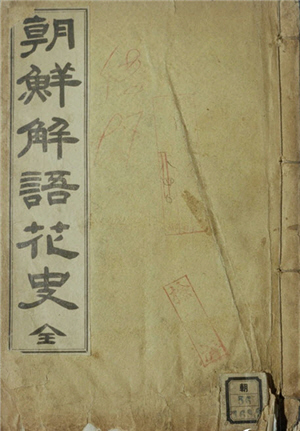 朝鮮解語花史 全
朝